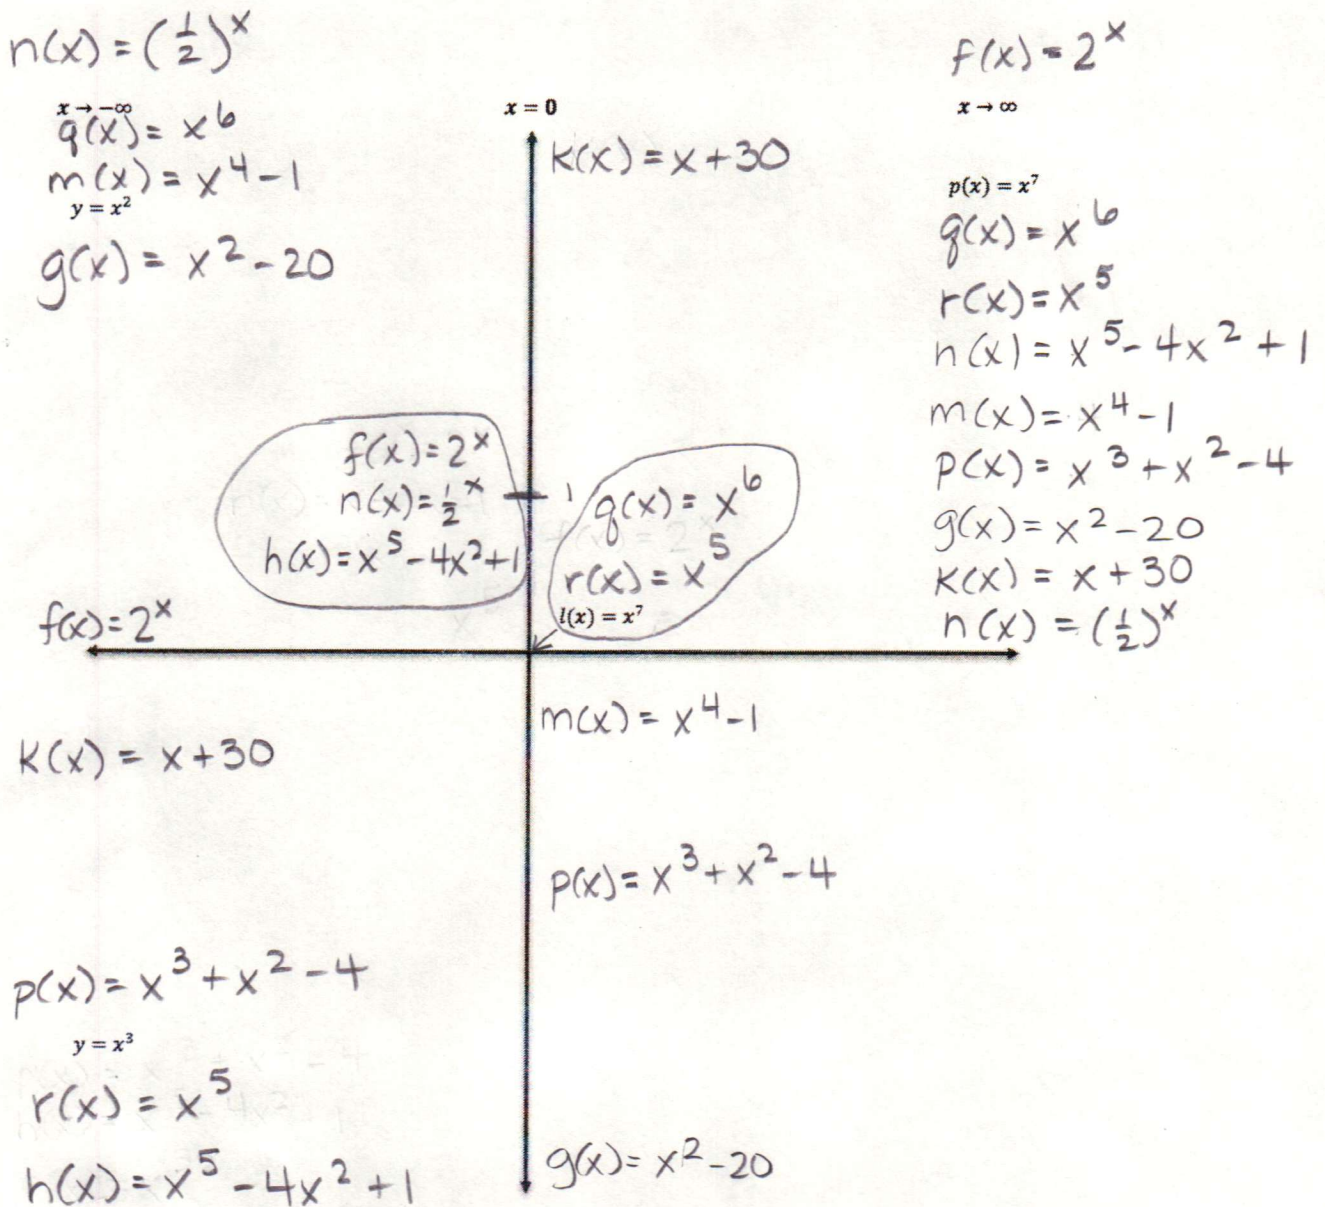 n(x) = (1/2)^x
x → -∞
q(x) = x^6
m(x) = x^4 - 1
y = x^2
g(x) = x^2 - 20
x = 0
k(x) = x + 30
f(x) = 2^x
x → ∞
p(x) = x^7
q(x) = x^6
r(x) = x^5
h(x) = x^5 - 4x^2 + 1
m(x) = x^4 - 1
p(x) = x^3 + x^2 - 4
g(x) = x^2 - 20
k(x) = x + 30
n(x) = (1/2)^x
f(x) = 2^x
n(x) = 1/2^x
h(x) = x^5 - 4x^2 + 1
1
q(x) = x^6
r(x) = x^5
l(x) = x^7
f(x) = 2^x
k(x) = x + 30
m(x) = x^4 - 1
p(x) = x^3 + x^2 - 4
p(x) = x^3 + x^2 - 4
y = x^3
r(x) = x^5
h(x) = x^5 - 4x^2 + 1
g(x) = x^2 - 20